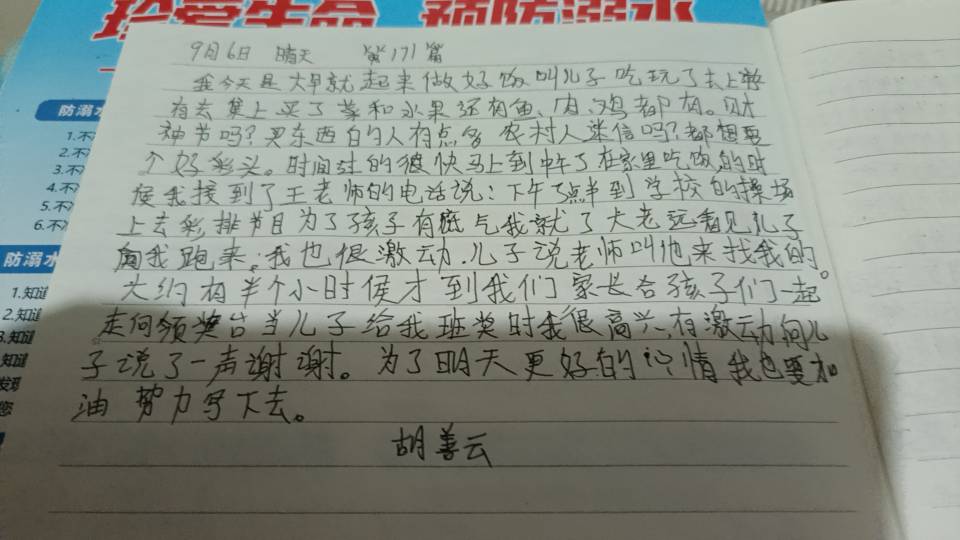 珍爱生命 预防溺水
防溺水
1.不
2.不
3.不
4.不
5.不
6.不
防溺水
1.知道
2.知道
3.知道
知道
发现
您
9月6日 晴天 第171篇
我今天是大早就起来做好饭叫儿子吃玩了去上学
有去集上买了菜和水果还有鱼、肉、鸡都有。财
神节吗?买东西的人有点多 农村人迷信吗?都想要
个好彩头。时间过的很快马上到中午了在家里吃饭的时
侯我接到了王老师的电话说:下午3点半到学校的操场
上去彩排节目为了孩子有底气我就了大老远看见儿子
向我跑来,我也很激动.儿子说老师叫他来找我的。
大约有半个小时侯才到我们家长合孩子们一起
走向领奖台当儿子给我班奖时我很高兴、有激动向儿
子说了一声谢谢。为了明天更好的心情我也要加
油 努力写下去。
胡善云